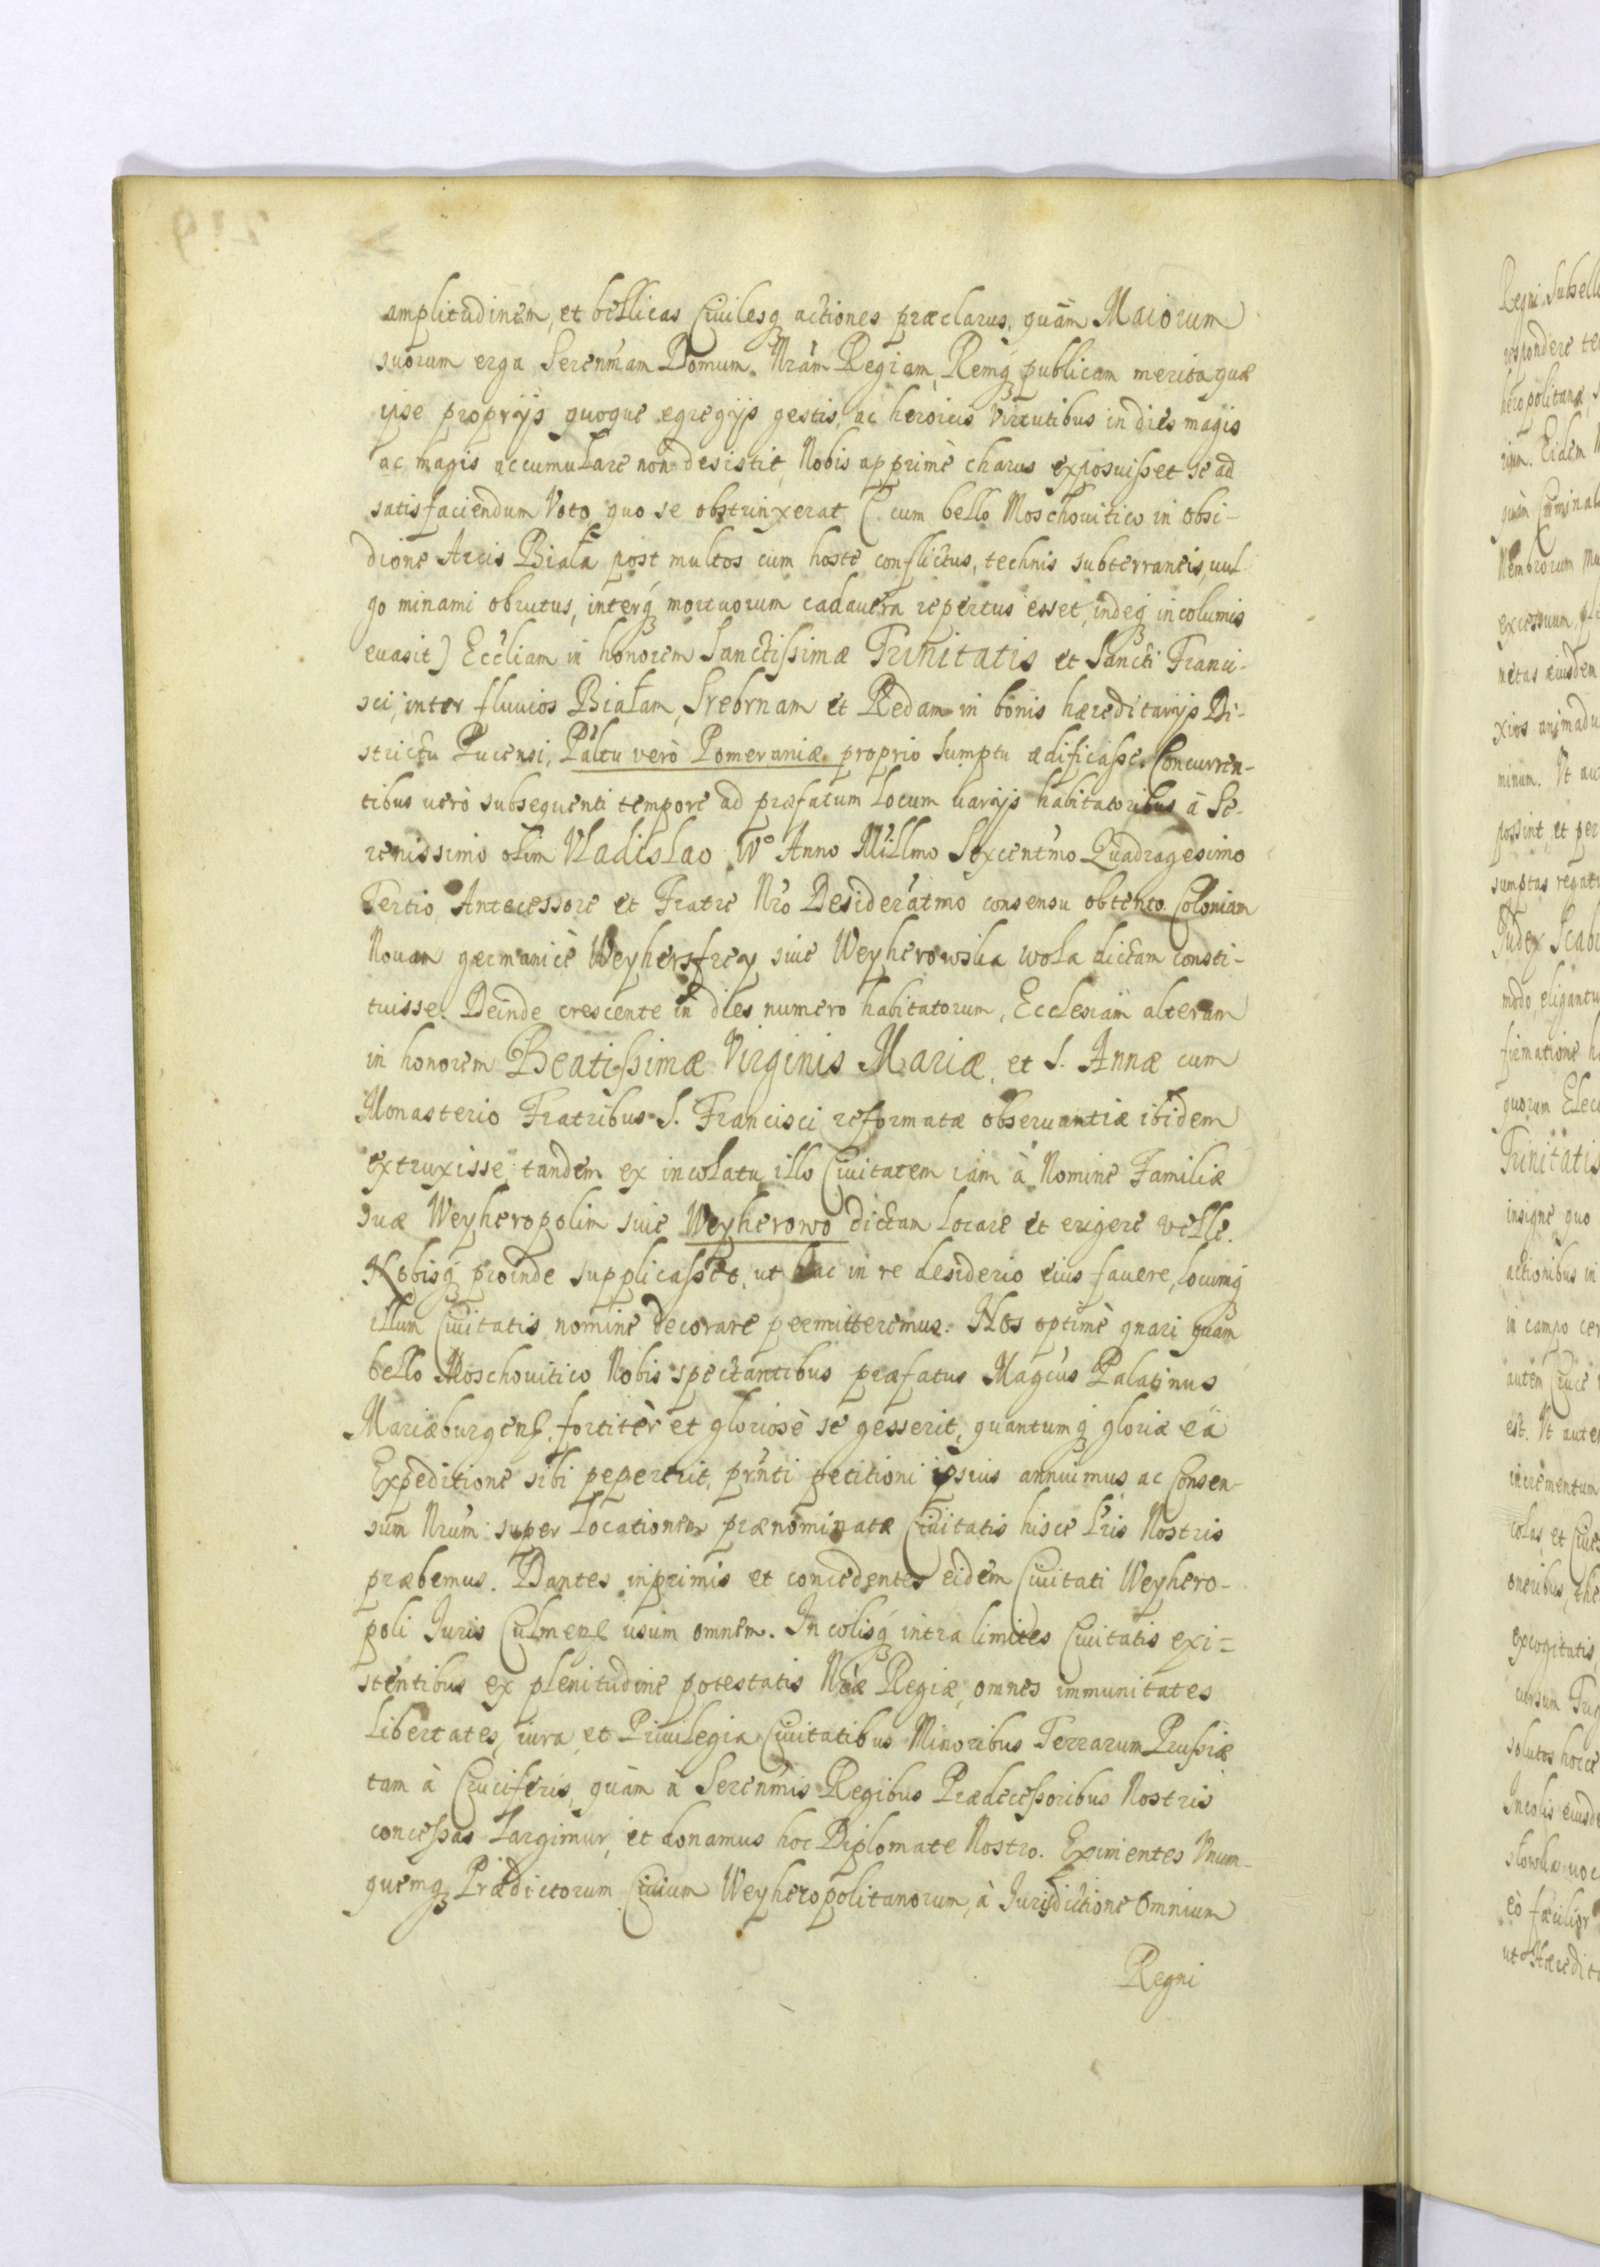 amplitudinem, et bellicas Civilesq; actiones præclarus, quàm Maiorum
suorum erga Serenm̃am Domum Nr̃am Regiam, Remq; publicam merita quæ
ipse proprijs quoque egregijs gestis, ac heroicis virtutibus in dies magis
ac magis accumulare non desistit, Nobis apprimè charus exposuisset se ad
satisfaciendum Voto quo se obstrinxerat (cum bello Moschovitico in obsi-
dione Arcis Biała post multos cum hoste conflictus, technis subterraneis, vul
go minami obrutus, interq; mortuorum cadavera repertus esset, indeq; incolumis
evasit) Eccliam in honorem Sanctissimæ Trinitatis et Sancti Franci-
sci, inter fluvios Białam, Srebrnam et Redam in bonis hæreditarijs Di-
strictu Pucensi, Paltu verò Pomeraniæ proprio sumptu ædificasse. Concurren-
tibus verò subsequenti tempore ad præfatum Locum varijs habitatoribus à Se-
renissimo olim Vladislao IVº Anno Millmo Sexcentmo Quadragesimo
Tertio, Antecessore et Fratre Nr̃o Desideratmo consensu obtento Coloniam
Novam germanicè Weyhersfrey sive Weyherowska wola dictam consti-
tuisse. Deinde crescente in dies numero habitatorum, Ecclesiam alteram
in honorem Beatissimæ Virginis Mariæ, et S. Annæ cum
Monasterio Fratribus S. Francisci reformatæ observantiæ ibidem
extruxisse, tandem ex incolatu illo Civitatem iam à Nomine Familiæ
suæ Weyheropolim sive Weyherowo dictam locare et erigere velle.
Nobisq; proinde supplicasset, ut hac in re desiderio eius favere, locumq;
illum Civitatis nomine decorare permitteremus. Nos optimè gnari quam
bello Moschovitico Nobis spectantibus præfatus Magcus Palatinus
Mariæburgens. fortitèr et gloriosè se gesserit, quantumq; gloriæ eâ
Expeditione sibi pepererit, prnti petitioni ipsius annuimus ac Consen-
sum Nrum super Locationem prænominatæ Civitatis hisce Lris Nostris
præbemus. Dantes inprimis et concedentes eidem Civitati Weyhero-
poli Juris Culmens. usum omnem. Incolisq; intra limites Civitatis exi=
stentibus ex plenitudine potestatis Nræ Regiæ, omnes immunitates
libertates, iura, et Privilegia Civitatibus Minoribus Terrarum Prussiæ
tam à Cruciferis, quàm a Serenmis Regibus Prædecessoribus Nostris
concessas largimur, et donamus hoc Diplomate Nostro. Eximentes Unum-
quemq; Prædictorum Civium Weyheropolitanorum, à Jurisdictione Omnium
Regni